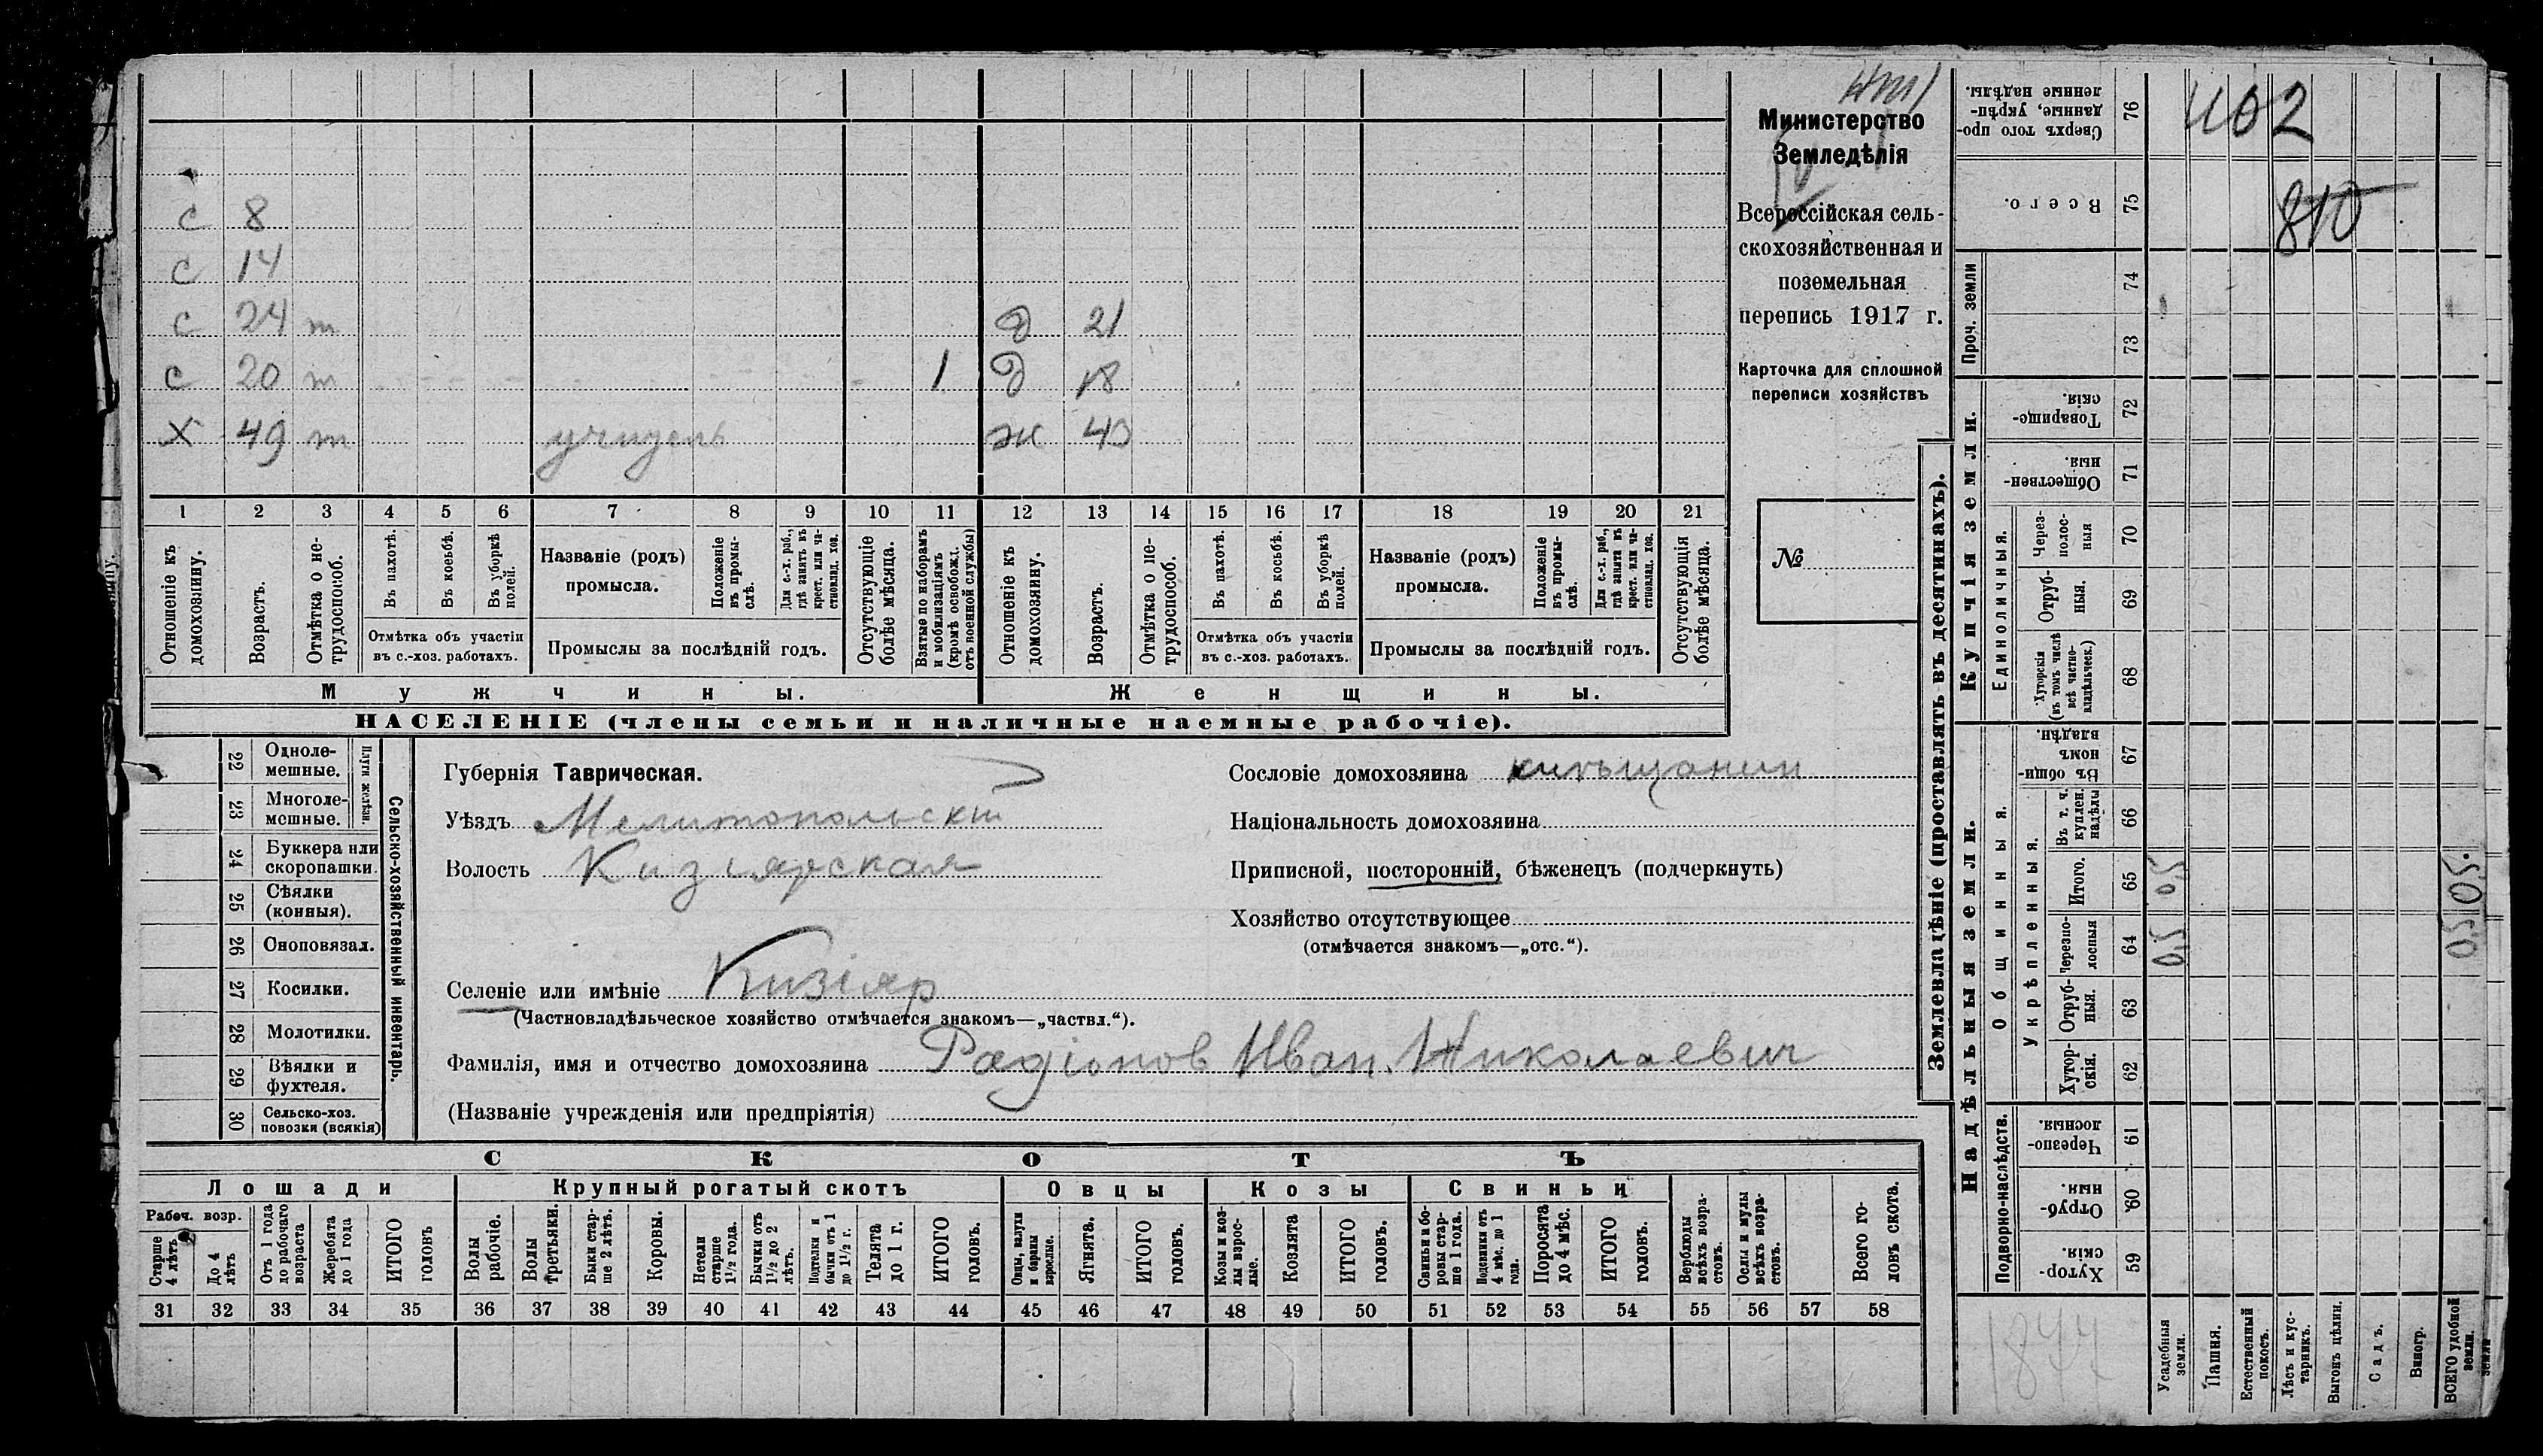 Министерство
Земледѣлія
Всероссійская сель-
скохозяйственная и
поземельная
перепись 1917 г.
Карточка для сплошной
переписи хозяйствъ
№
с 8
с 14
с 24 т д 21
с 20 т 1 д 18
х 49 т учитель ж 43
1 2 3 4 5 6 7 8 9 10 11 12 13 14 15 16 17 18 19 20 21
Отношеніе къ домохозяину.
Возрастъ.
Отмѣтка о не-трудоспособ.
Въ пахотѣ.
Въ косьбѣ.
Въ уборкѣ полей.
Отмѣтка объ участіи въ с.-хоз. работахъ.
Названіе (родъ) промысла.
Положеніе въ промы-слѣ.
Для с.-х. раб., гдѣ занятъ въ крест. или ча-стновлад. хоз.
Промыслы за послѣдній годъ.
Отсутствующіе болѣе мѣсяца.
Взятые по наборамъ и мобилизаціямъ (кромѣ освобожд. отъ военной службы)
Отношеніе къ домохозяину.
Возрастъ.
Отмѣтка о не-трудоспособ.
Въ пахотѣ.
Въ косьбѣ.
Въ уборкѣ полей.
Отмѣтка объ участіи въ с.-хоз. работахъ.
Названіе (родъ) промысла.
Положеніе въ промы-слѣ.
Для с.-х. раб., гдѣ занята въ крест. или ча-стновлад. хоз.
Промыслы за послѣдній годъ.
Отсутствующія болѣе мѣсяца.
Мужчины.
Женщины.
НАСЕЛЕНІЕ (члены семьи и наличные наемные рабочіе).
Сельско-хозяйственный инвентарь.
Плуги желѣзн.
22 Одноле-мешные.
23 Многоле-мешные.
24 Буккера или скоропашки.
25 Сѣялки (конныя).
26 Сноповязал.
27 Косилки.
28 Молотилки.
29 Вѣялки и фухтеля.
30 Сельско-хоз. повозки (всякія)
Губернія Таврическая.
Уѣздъ Мелитопольскій
Волость Кизіярская
Селеніе или имѣніе Кизіяр
(Частновладѣльческое хозяйство отмѣчается знакомъ—„частвл.“).
Фамилія, имя и отчество домохозяина Радіонов Иван Николаевич
(Названіе учрежденія или предпріятія)
Сословіе домохозяина
Національность домохозяина
Приписной, посторонній, бѣженецъ (подчеркнуть)
Хозяйство отсутствующее
(отмѣчается знакомъ—„отс.“).
СКОТЪ
Лошади
Крупный рогатый скотъ
Овцы
Козы
Свиньи
Рабоч. возр.
Старше 4 лѣтъ
До 4 лѣтъ
Отъ 1 года до рабочаго возраста
Жеребята до 1 года
ИТОГО головъ
Волы рабочіе.
Волы третьяки.
Быки стар-ше 2 лѣтъ.
Коровы.
Нетели старше 1½ года.
Бычки отъ 1½ до 2 лѣтъ.
Подтелки и бычки отъ 1 до 1½ г.
Телята до 1 г.
ИТОГО головъ.
Овцы, валухи и бараны взрослые.
Ягнята.
ИТОГО головъ.
Козы и коз-лы взрос-лые.
Козлята
ИТОГО головъ.
Свиньи и бо-ровы стар-ше 1 года.
Подсвинки отъ 4 мѣс. до 1 года.
Поросята до 4 мѣс.
ИТОГО головъ.
Верблюды всѣхъ возра-стовъ.
Ослы и мулы всѣхъ возра-стовъ.
Всего го-ловъ скота.
31 32 33 34 35 36 37 38 39 40 41 42 43 44 45 46 47 48 49 50 51 52 53 54 55 56 57 58
Землевладѣніе (проставлять въ десятинахъ).
Надѣльныя земли.
Купчія земли.
Проч. земли
Подворно-наслѣдств.
Общинныя.
Укрѣпленныя.
Единоличныя.
59 Хутор-скія.
60 Отруб-ныя.
61 Черезпо-лосныя.
62 Хутор-скія.
63 Отруб-ныя.
64 Черезпо-лосныя
65 Итого.
66 Въ т. ч. куплен. надѣлы
67 Въ общи-номъ владѣн.
68 Хуторскія (въ томъ числѣ всѣ частно-владѣльческ.)
69 Отруб-ныя.
70 Через-полос-ныя
71 Обществен-ныя.
72 Товарище-скія.
73
74
75 Всего.
76 Сверхъ того про-данные, укрѣп-ленные надѣлы.
Усадебныя земли.
Пашня.
Естественный покосъ.
Лѣсъ и кус-тарникъ.
Выгонъ цѣлин.
Садъ.
Виногр.
ВСЕГО удобной земли.
402
810
0,5 0,5
0,5 0,5
1877